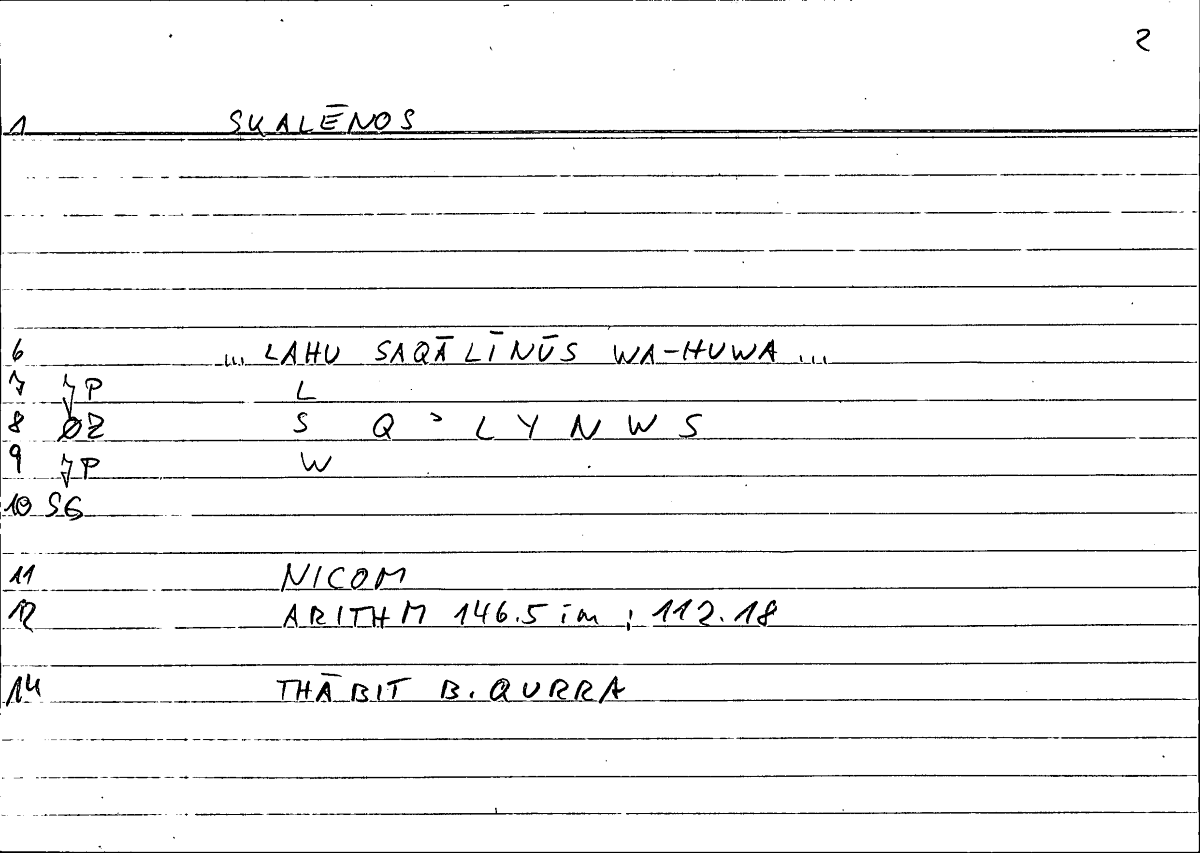 2
1 SKALĒNOS
6 ... LAHU SAQĀLĪNŪS WA-HUWA ...
7 JP L
8 ØZ S Q ʾ L Y N W S
9 JP W
10 SG
11 NICOM
12 ARITHM 146.5 im ; 112.18
14 THĀBIT B. QURRA